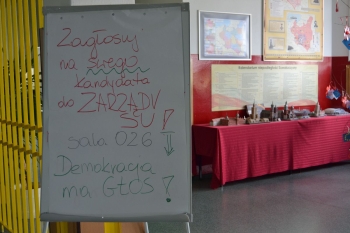 Zagłosuj
na swego
kandydata
do ZARZĄDU
SU!
sala 026 ↓
Demokracja
ma GŁOS!